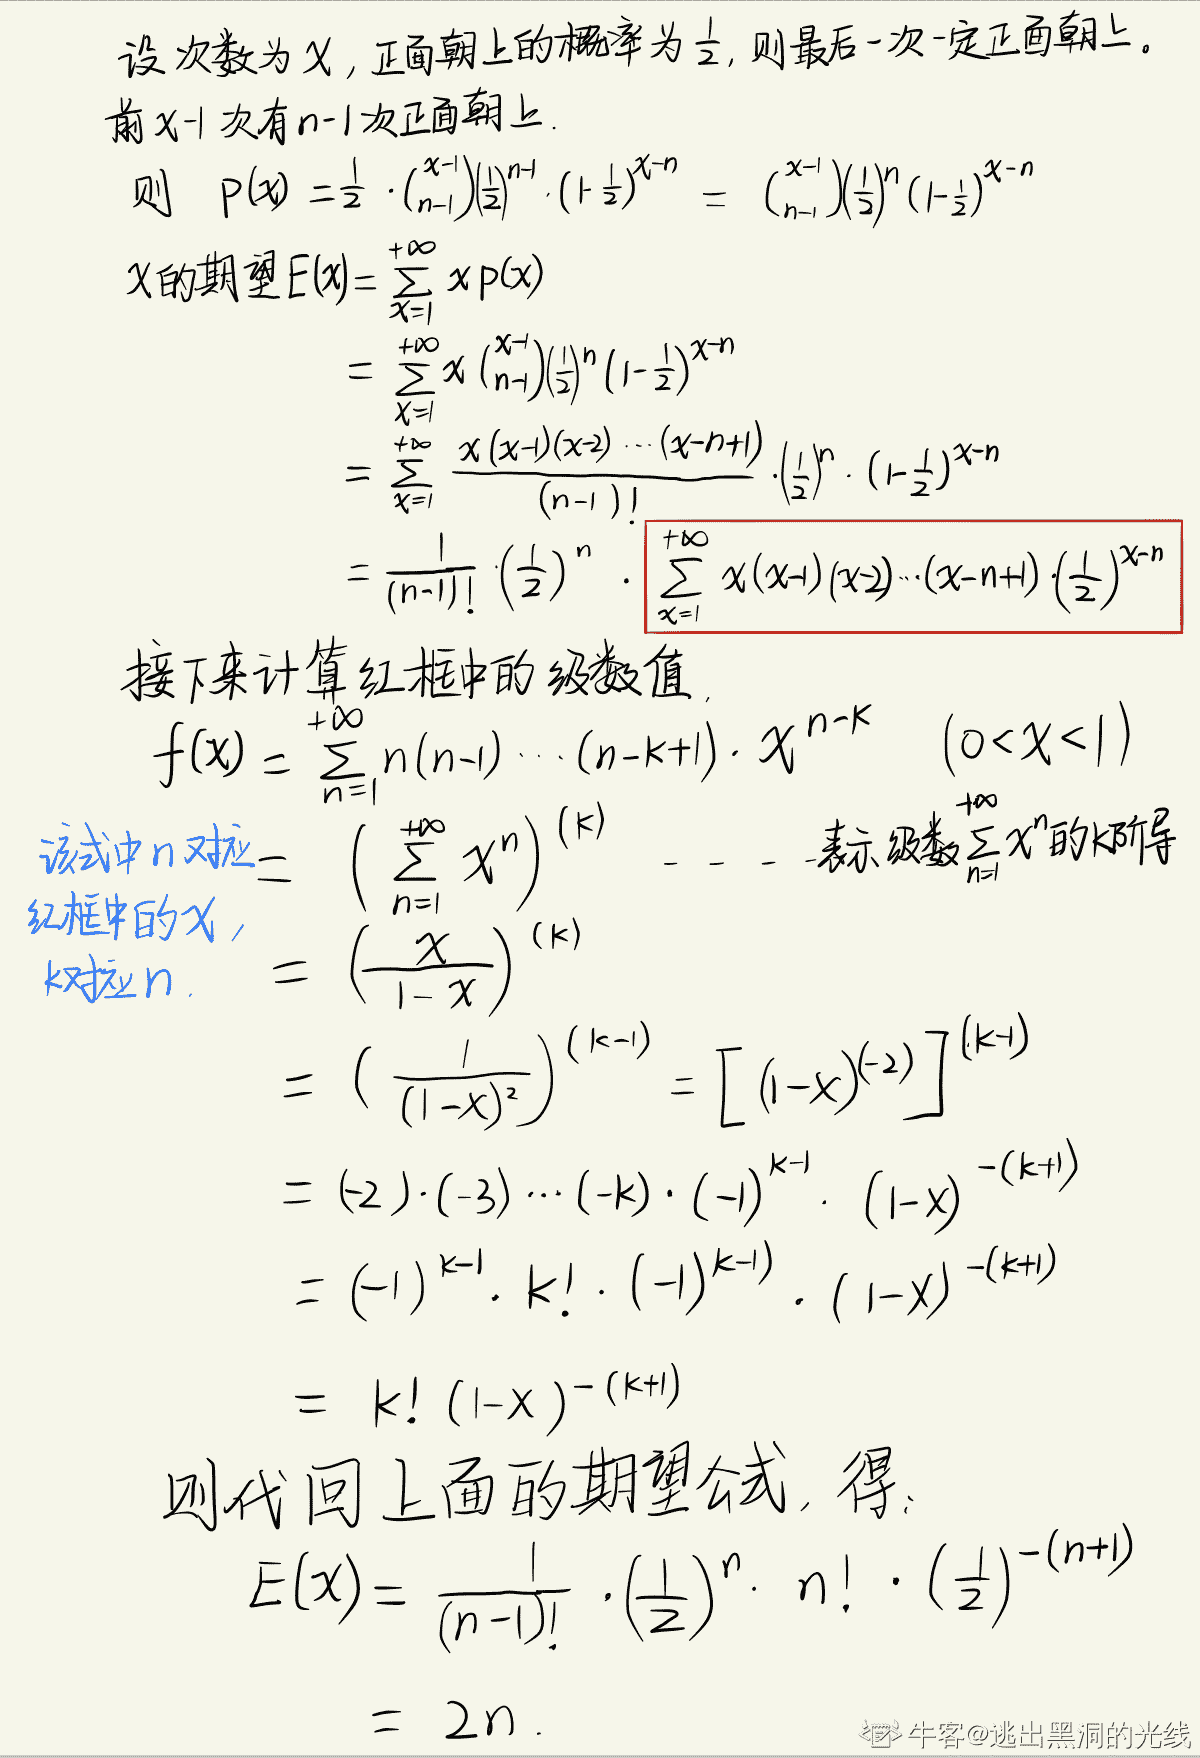 设次数为X，正面朝上的概率为1/2，则最后一次一定正面朝上。
前x-1次有n-1次正面朝上.
则 P(x) = 1/2 · (x-1 n-1)(1/2)^(n-1) · (1-1/2)^(x-n) = (x-1 n-1)(1/2)^n (1-1/2)^(x-n)
X的期望E(x) = ∑_{x=1}^{+∞} x p(x)
= ∑_{x=1}^{+∞} x (x-1 n-1)(1/2)^n (1-1/2)^(x-n)
= ∑_{x=1}^{+∞} x(x-1)(x-2)⋯(x-n+1)/(n-1)! · (1/2)^n · (1-1/2)^(x-n)
= 1/(n-1)! · (1/2)^n · ∑_{x=1}^{+∞} x(x-1)(x-2)⋯(x-n+1)·(1/2)^(x-n)
接下来计算红框中的级数值.
f(x) = ∑_{n=1}^{+∞} n(n-1)⋯(n-k+1)·x^(n-k) (0<x<1)
= (∑_{n=1}^{+∞} x^n)^(k) - - - - 表示级数∑_{n=1}^{+∞} x^n的k阶导
该式中n对应
红框中的x，
k对应n.
= (x/(1-x))^(k)
= (1/(1-x)^2)^(k-1) = [(1-x)^(-2)]^(k-1)
= (-2)·(-3)⋯(-k)·(-1)^(k-1)·(1-x)^-(k+1)
= (-1)^(k-1)·k!·(-1)^(k-1)·(1-x)^-(k+1)
= k!(1-x)^-(k+1)
则代回上面的期望公式，得：
E(x) = 1/(n-1)! · (1/2)^n · n! · (1/2)^-(n+1)
= 2n.
牛客@逃出黑洞的光线